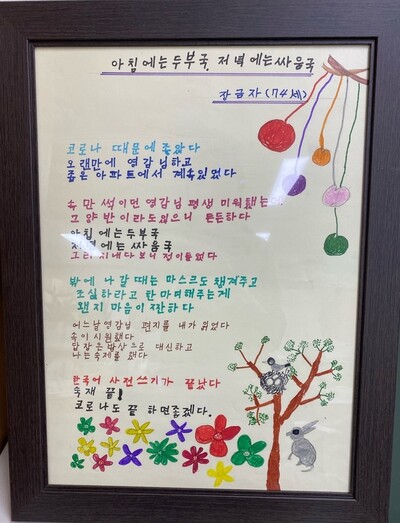 아침에는두부국, 저녁에는싸움국
강금자(74세)
코로나 때문에 좋았다
오랜만에 영감님하고
좁은 아파트에서 계속있었다
속만 썩이면 영감님 평생 미워했는데
그 양반이라도있으니 든든하다
아침에는두부국
저녁에는 싸움국
그리 지내다보니 정이들었다
밖에 나갈때는 마스크도 챙겨주고
조심하라고 한마디해주는게
왠지 마음이 짠하다
어느날영감님 편지를 내가 읽었다
속이 시원했다
답장은밥상으로 대신하고
나는숙제를 했다
한국어 사전쓰기가 끝났다
숙재 끝!
코로나도 끝 하면좋겠다.